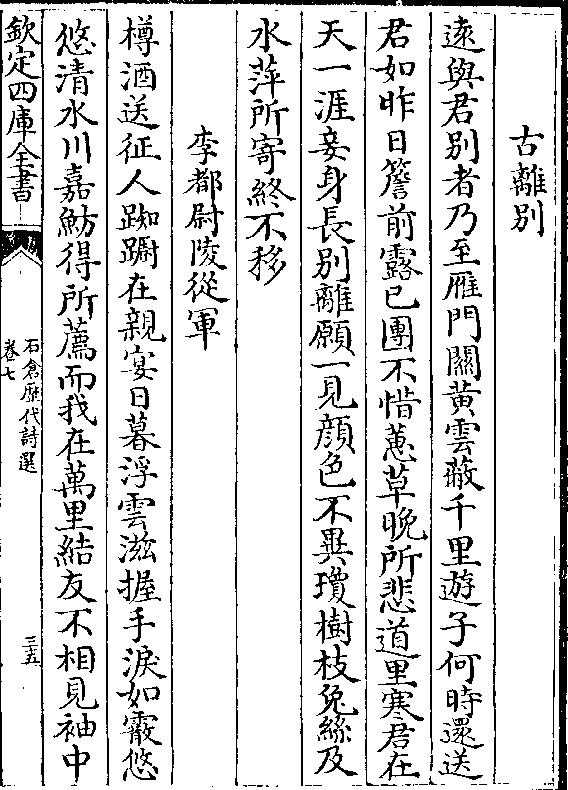 古離别
逺與君别者乃至雁門關黄雲蔽千里遊子何時還送
君如昨日簷前露已團不惜蕙草晚所悲道里寒君在
天一涯妾身長别離願一見顔色不異瓊樹枝兔絲及
水萍所寄終不移
李都尉陵從軍
樽酒送征人踟蹰在親宴日暮浮雲滋握手淚如霰悠
悠清水川嘉魴得所薦而我在萬里結友不相見袖中
欽定四庫全書
石倉歷代詩選
卷七
三五